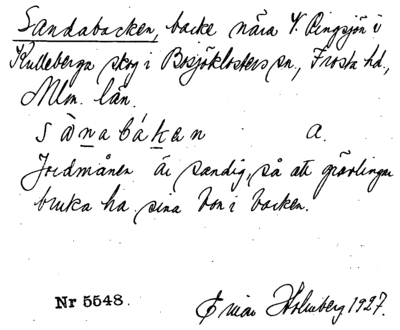 Sandabacken, backe nära V. Ringsjön i
Kulleberga skog i Bosjökloster sn., Frosta hd.,
Mlm. län.
sànabákan a.
Jordmånen är sandig, så att grävlingar
bruka ha sina bon i backen.
Nr 5548.
Einar Holmberg 1927.